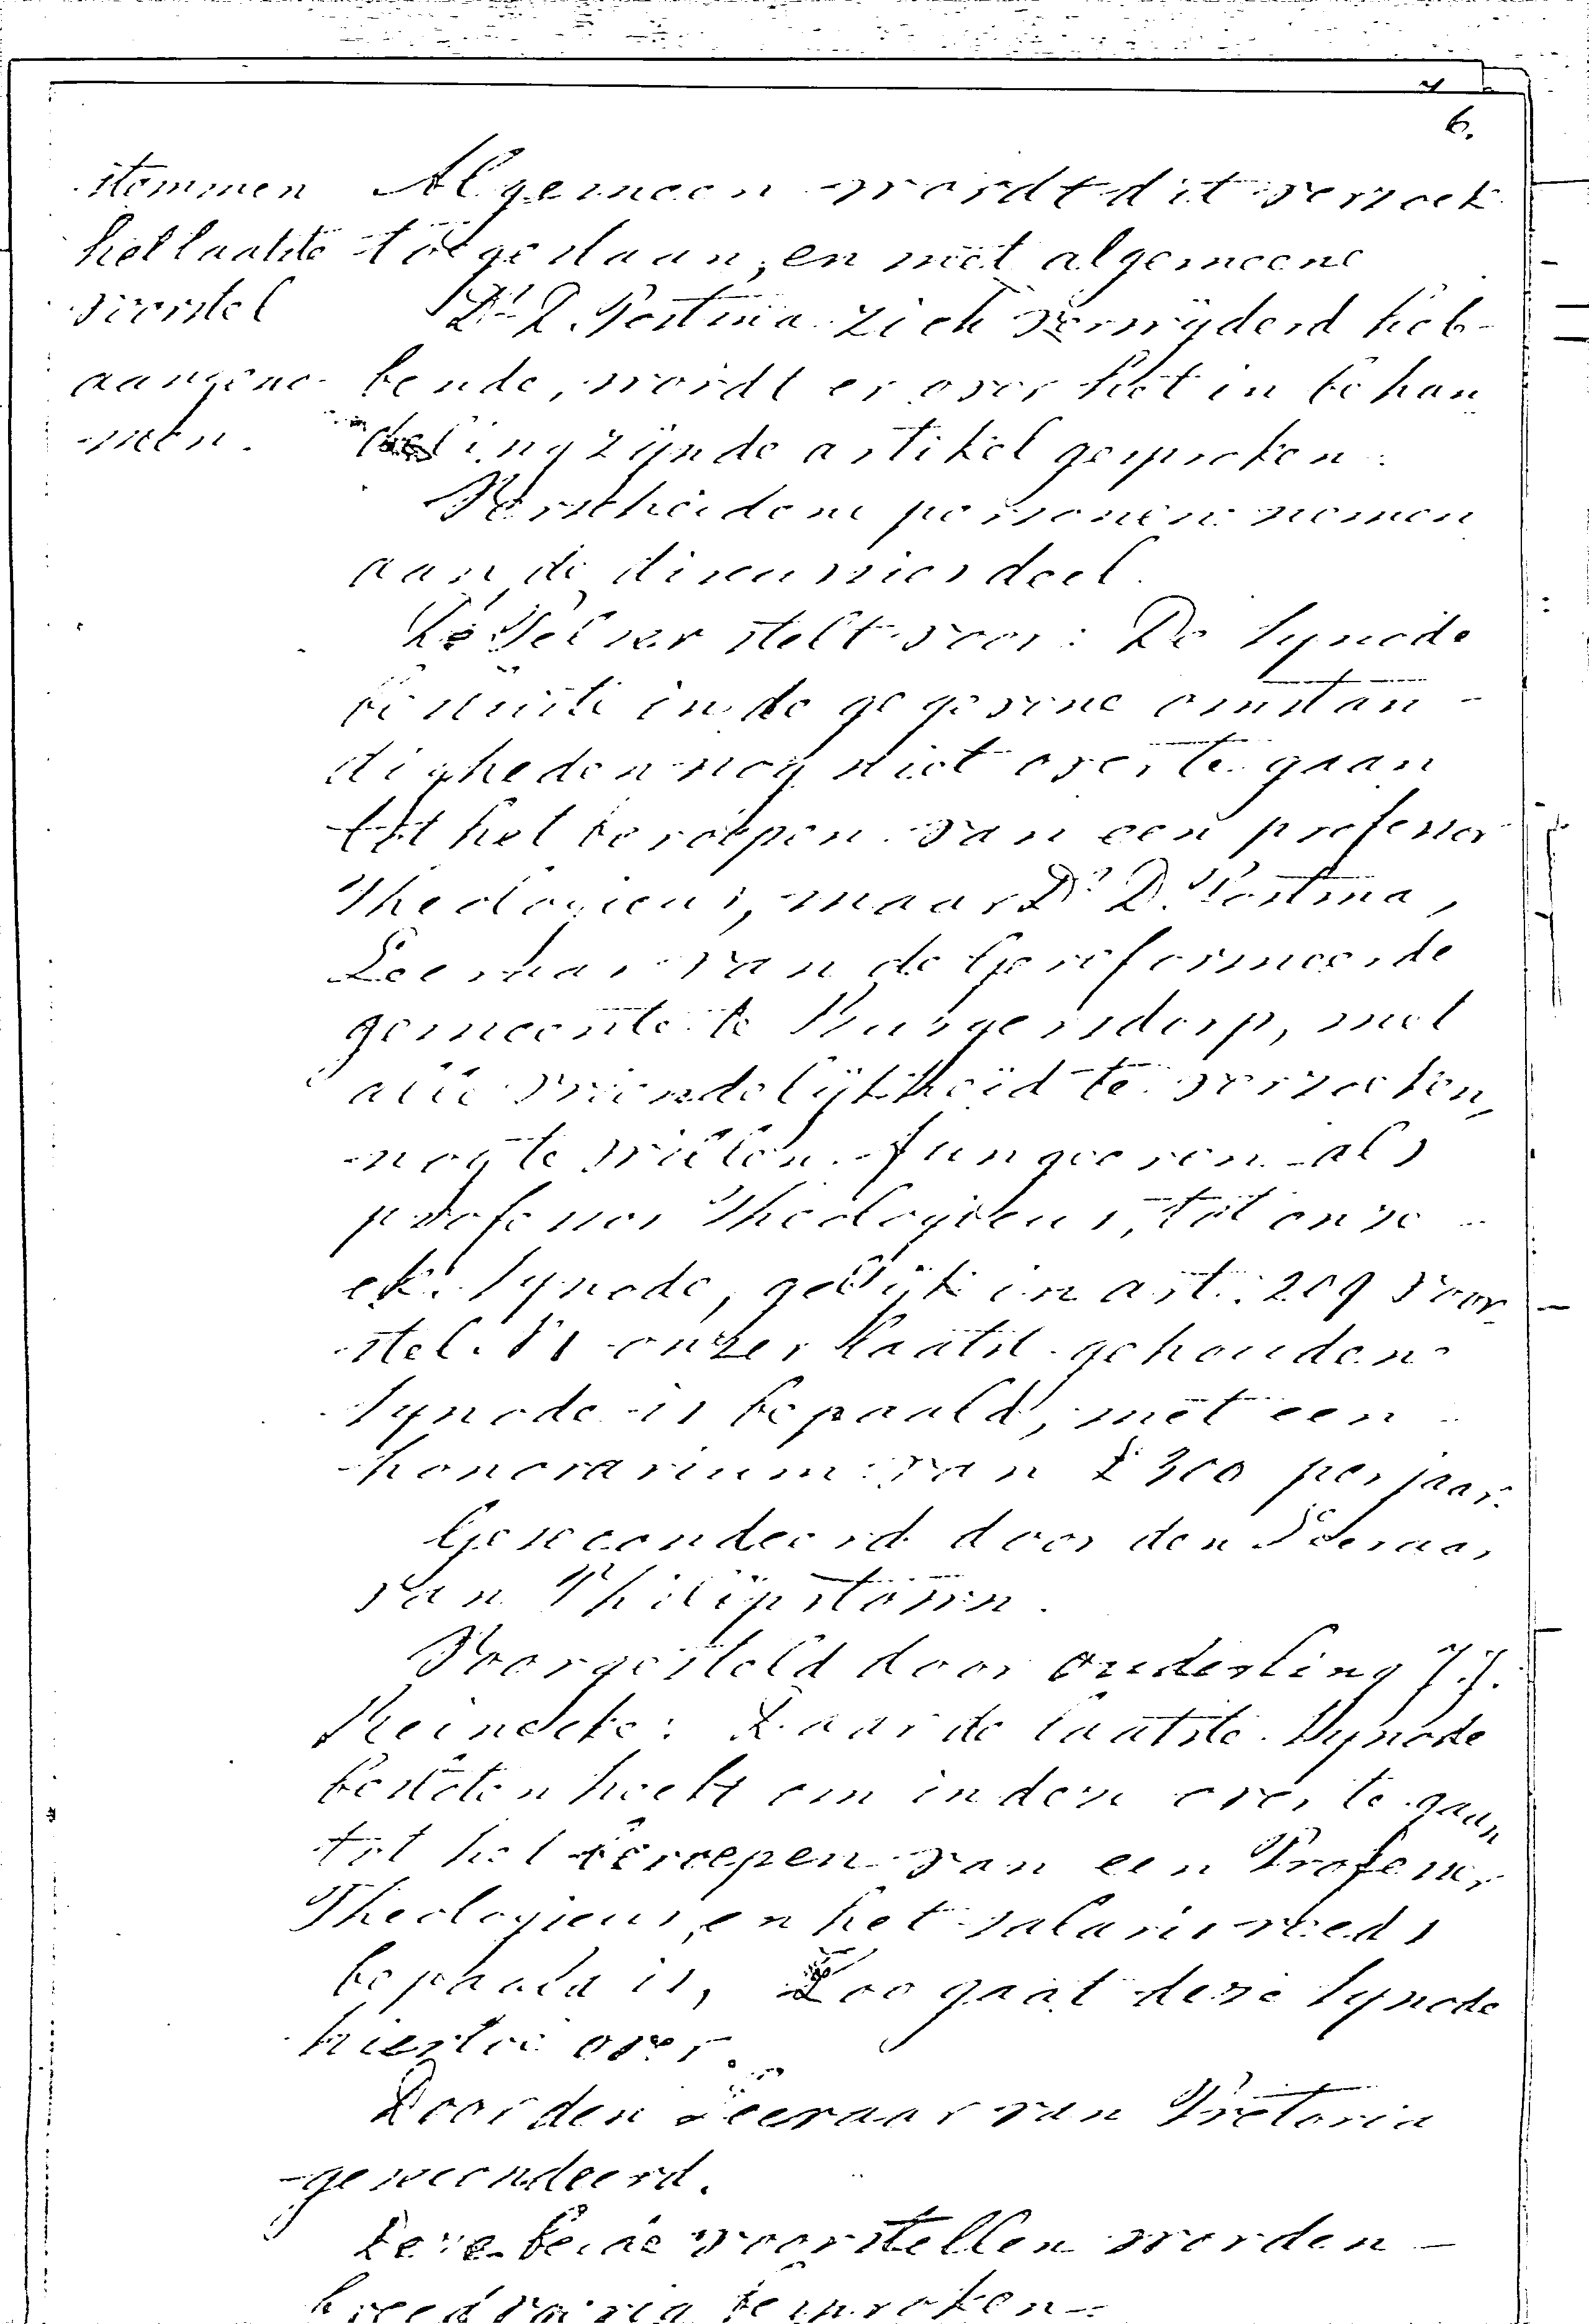 6.
stemmen
het laatste
voorstel
aangeno-
men.
Algemeen wordt dit verzoek
toegestaan, en met algemeene
Ds. D. Postma zich verwijderd heb-
bende, wordt er over het in behan
deling zijnde artikel gesproken.
Verscheidene personen nemen
aan de discussies deel.
De Scriba stelt voor: De Synode
besluite in de gegevene omstan-
digheden nog niet over te gaan
tot het beroepen van een professor
Theologicus, maar Ds. D. Postma,
Leeraar van de Gereformeerde
gemeente te Burgersdorp, met
alle vriendelijkheid te verzoeken,
nog te willen fungeeren als
professor Theologicus, tot onze
ek. Synode, gelijk in art. 209 voor
stel onzer laatst gehouden
Synode is bepaald, met een
honorarium van £300 per jaar.
Gesecondeerd door den Leeraar
van Philipstown.
Voorgesteld door ouderling J. J.
Reinecke: Daar de laatste Synode
besloten heeft om indien over te gaan
tot het beroepen van een Professor
Theologicus, en het salaris reeds
bepaald is, Zoo gaat deze Synode
hiertoe over.
Door den Leeraar van Pretoria
gesecondeerd.
Deze beide voorstellen worden
breedvoerig besproken